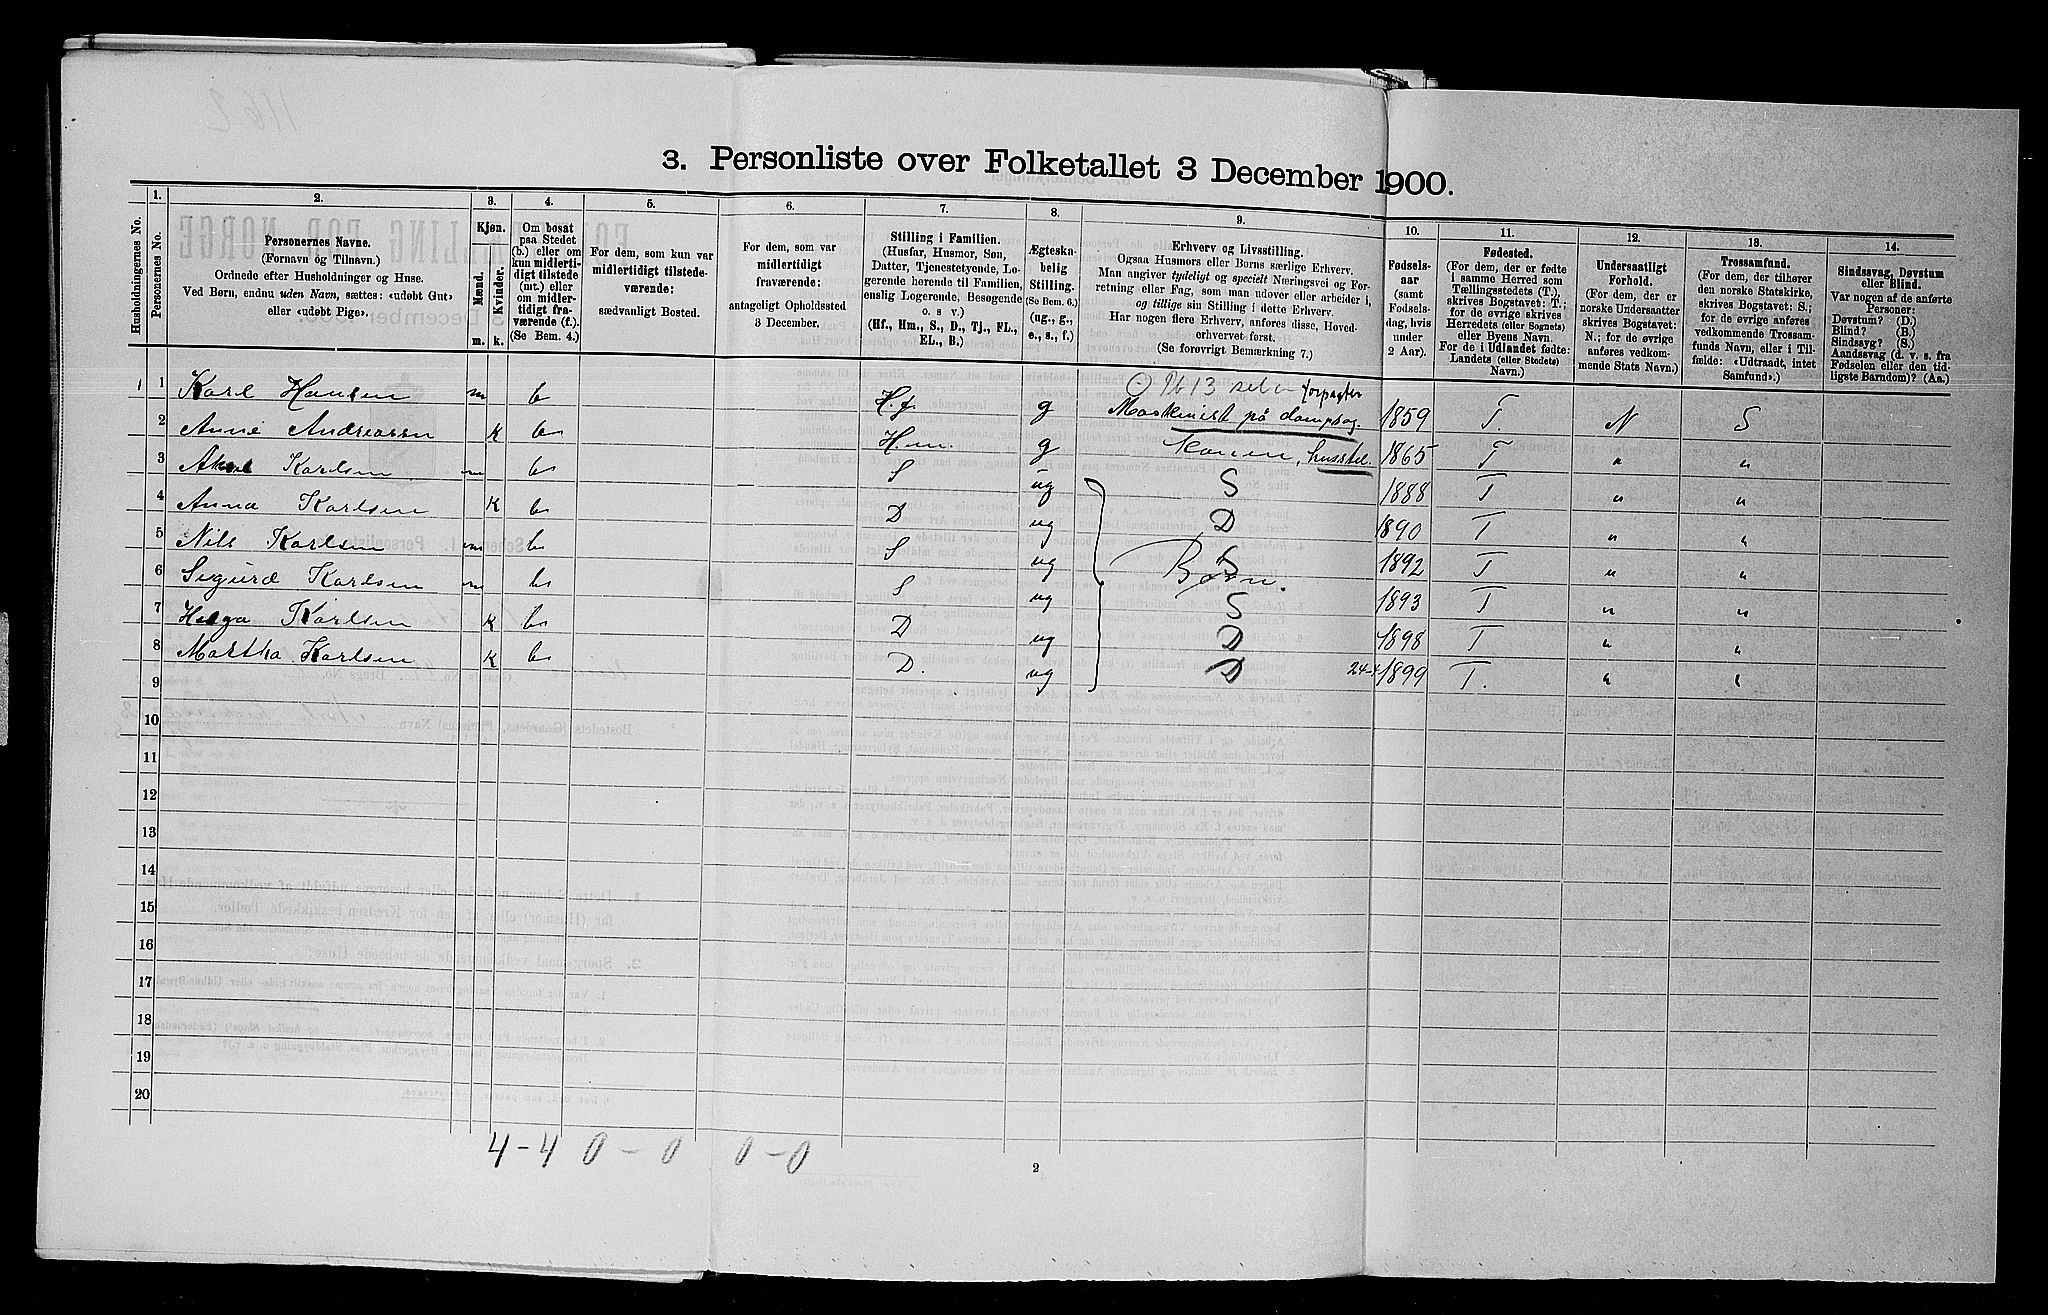 3. Personliste over Folketallet 3 December 1900.
Husholdningernes No.
1.
Personernes No.
2.
Personernes Navne.
(Fornavn og Tilnavn.)
Ordnede efter Husholdninger og Huse.
Ved Børn, endnu uden Navn, sættes: «udøbt Gut»
eller «udøbt Pige».
3.
Kjøn.
Mænd.
Kvinder.
m.
k.
4.
Om bosat
paa Stedet
(b.) eller om
kun midlerti-
digt tilstede
(mt.) eller
om midler-
tidigt fra-
værende (f.).
(Se Bem. 4.)
5.
For dem, som kun var
midlertidigt tilstede-
værende:
sædvanligt Bosted.
6.
For dem, som var
midlertidigt
fraværende:
antageligt Opholdssted
3 December.
7.
Stilling i Familien.
(Husfar, Husmor, Søn,
Datter, Tjenestetyende, Lo-
gerende hørende til Familien,
enslig Logerende, Besøgende
o. s. v.)
(Hf., Hm., S., D., Tj., FL.,
EL., B.)
8.
Ægteska-
belig
Stilling.
(Se Bem. 6.)
(ug., g.,
e., s., f.)
9.
Erhverv og Livsstilling.
Ogsaa Husmors eller Børns særlige Erhverv.
Man angiver tydeligt og specielt Næringsvei og For-
retning eller Fag, som man udøver eller arbeider i,
og tillige sin Stilling i dette Erhverv.
Har nogen flere Erhverv, anføres disse, Hoved-
erhvervet først.
(Se forøvrigt Bemærkning 7.)
10.
Fødsels-
aar
(samt
Fødsels-
dag, hvis
under
2 Aar).
11.
Fødested.
(For dem, der er fødte
i samme Herred som
Tællingsstedets (T.),
skrives Bogstavet: T.;
for de øvrige skrives
Herredets (eller Sognets)
eller Byens Navn.
For de i Udlandet fødte:
Landets (eller Stedets)
Navn.)
12.
Undersaatligt
Forhold.
(For dem, der er
norske Undersaatter
skrives Bogstavet:
N.; for de øvrige
anføres vedkom-
mende Stats Navn.)
13.
Trossamfund.
(For dem, der tilhører
den norske Statskirke,
skrives Bogstavet: S.;
for de øvrige anføres
vedkommende Trossam-
funds Navn, eller i Til-
fælde: «Udtraadt, intet
Samfund».)
14.
Sindssvag, Døvstum
eller Blind.
Var nogen af de anførte
Personer:
Døvstum? (D.)
Blind? (B.)
Sindssyg? (S.)
Aandssvag (d. v. s. fra
Fødselen eller den tid-
ligste Barndom)? (Aa.)
1 1 Karl Hansen m b H.f g Maskinist på dampsag. forpagter 1859 T. N S
2 Anne Andreassen K b Hm. g Konen, husstel. 1865 T " "
3 Aksel Karlsen m b S ug S 1888 T " "
4 Anna Karlsen K b D ug D 1890 T " "
5 Nils Karlsen m b S ug S Børn. 1892 T " "
6 Sigurd Karlsen m b S ug S 1893 T " "
7 Helga Karlsen K b D ug D 1898 T " "
8 Martha Karlsen K b D. ug D 24-4 1899 T. " "
9
10
11
12
13
14
15
16
17
18
19
20
4-4 0-0 0-0
2